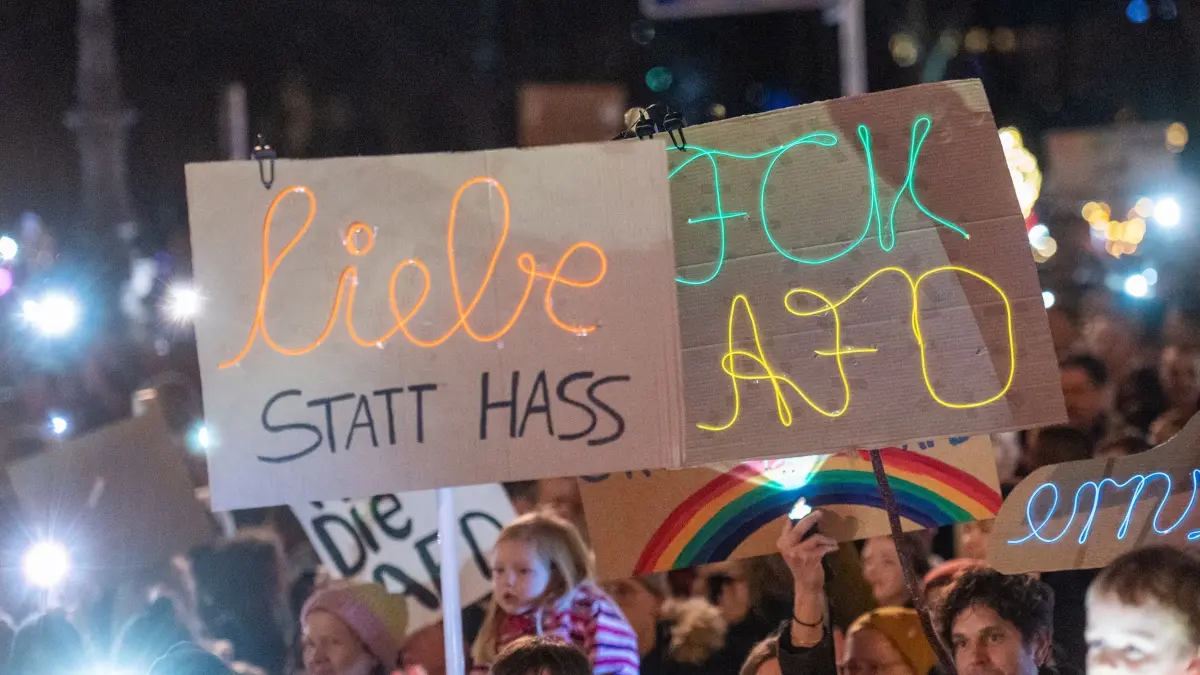 liebe
STATT HASS
FCK
AFD
Die
AFD
ern